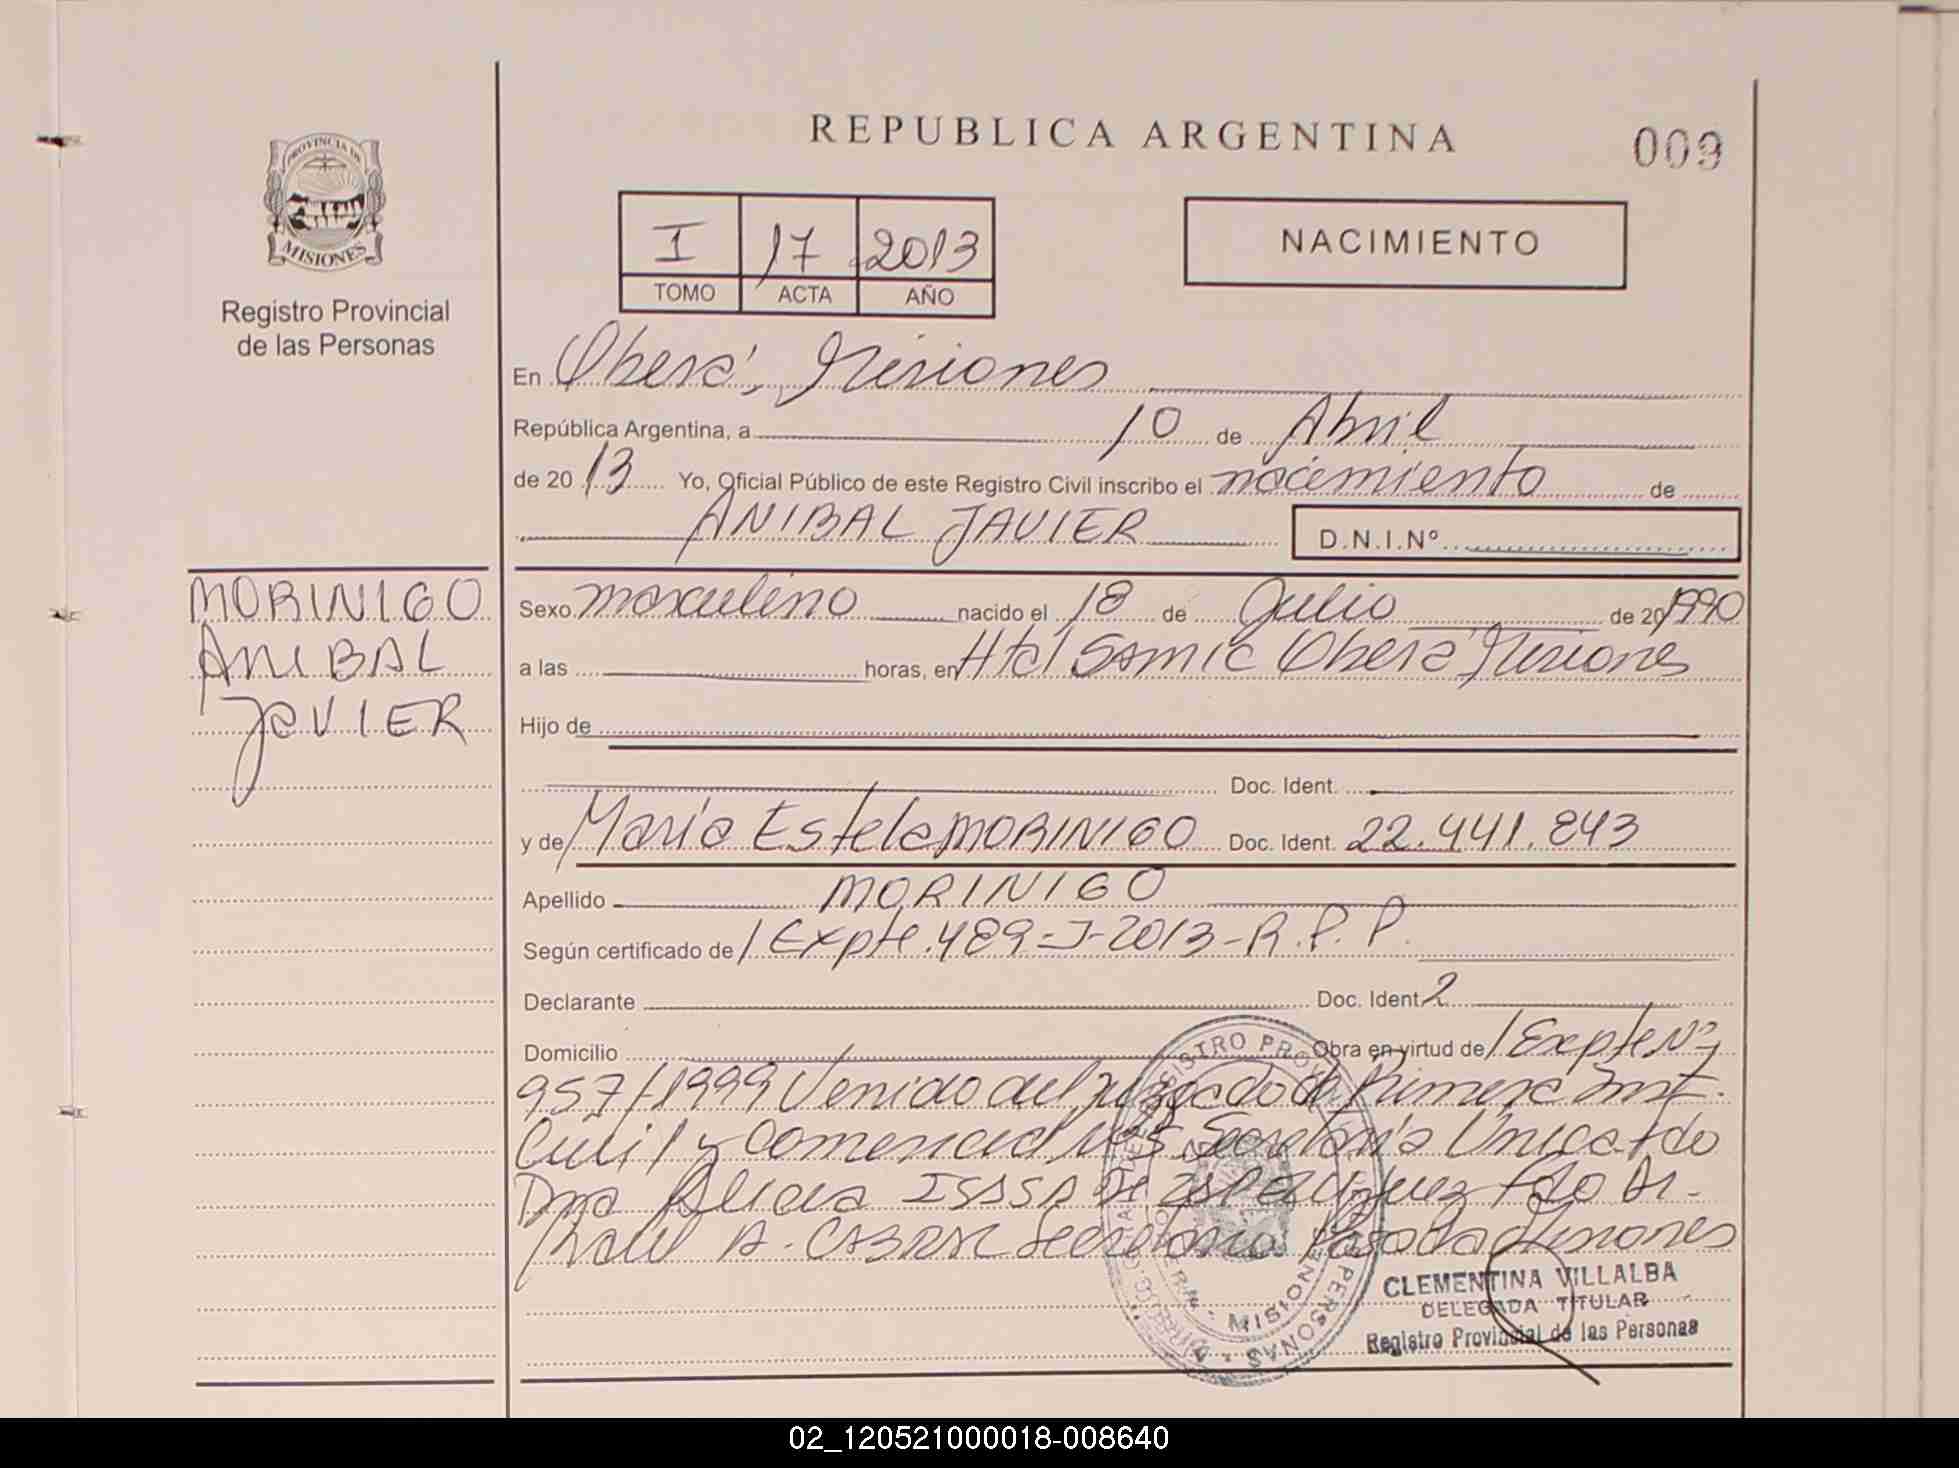 PROVINCIA DE
MISIONES
Registro Provincial
de las Personas
MORINIGO
ANIBAL
JAVIER
REPUBLICA ARGENTINA
009
I 17 2013
TOMO ACTA AÑO
NACIMIENTO
En Oberá, Misiones
República Argentina, a 10 de Abril
de 2013 Yo, Oficial Público de este Registro Civil inscribo el nacimiento de
ANIBAL JAVIER D.N.I.Nº
Sexo masculino nacido el 18 de Julio de 20 1990
a las horas, en Htal Samic Oberá Misiones
Hijo de
Doc. Ident.
y de María Estela MORINIGO Doc. Ident. 22.441.843
Apellido MORINIGO
Según certificado de Expte. 489-J-2013-R.P.P.
Declarante Doc. Ident
Domicilio Obra en virtud de Expte Nº
957/1999 Venido del Juzgado de Primera Inst.
Civil y Comercial Nº5 Secretaría Unica fdo
Dra Alicia fdo Dr.
Raul A. Secretario Posadas Misiones
CLEMENTINA VILLALBA
DELEGADA TITULAR
Registro Provincial de las Personas
02_120521000018-008640